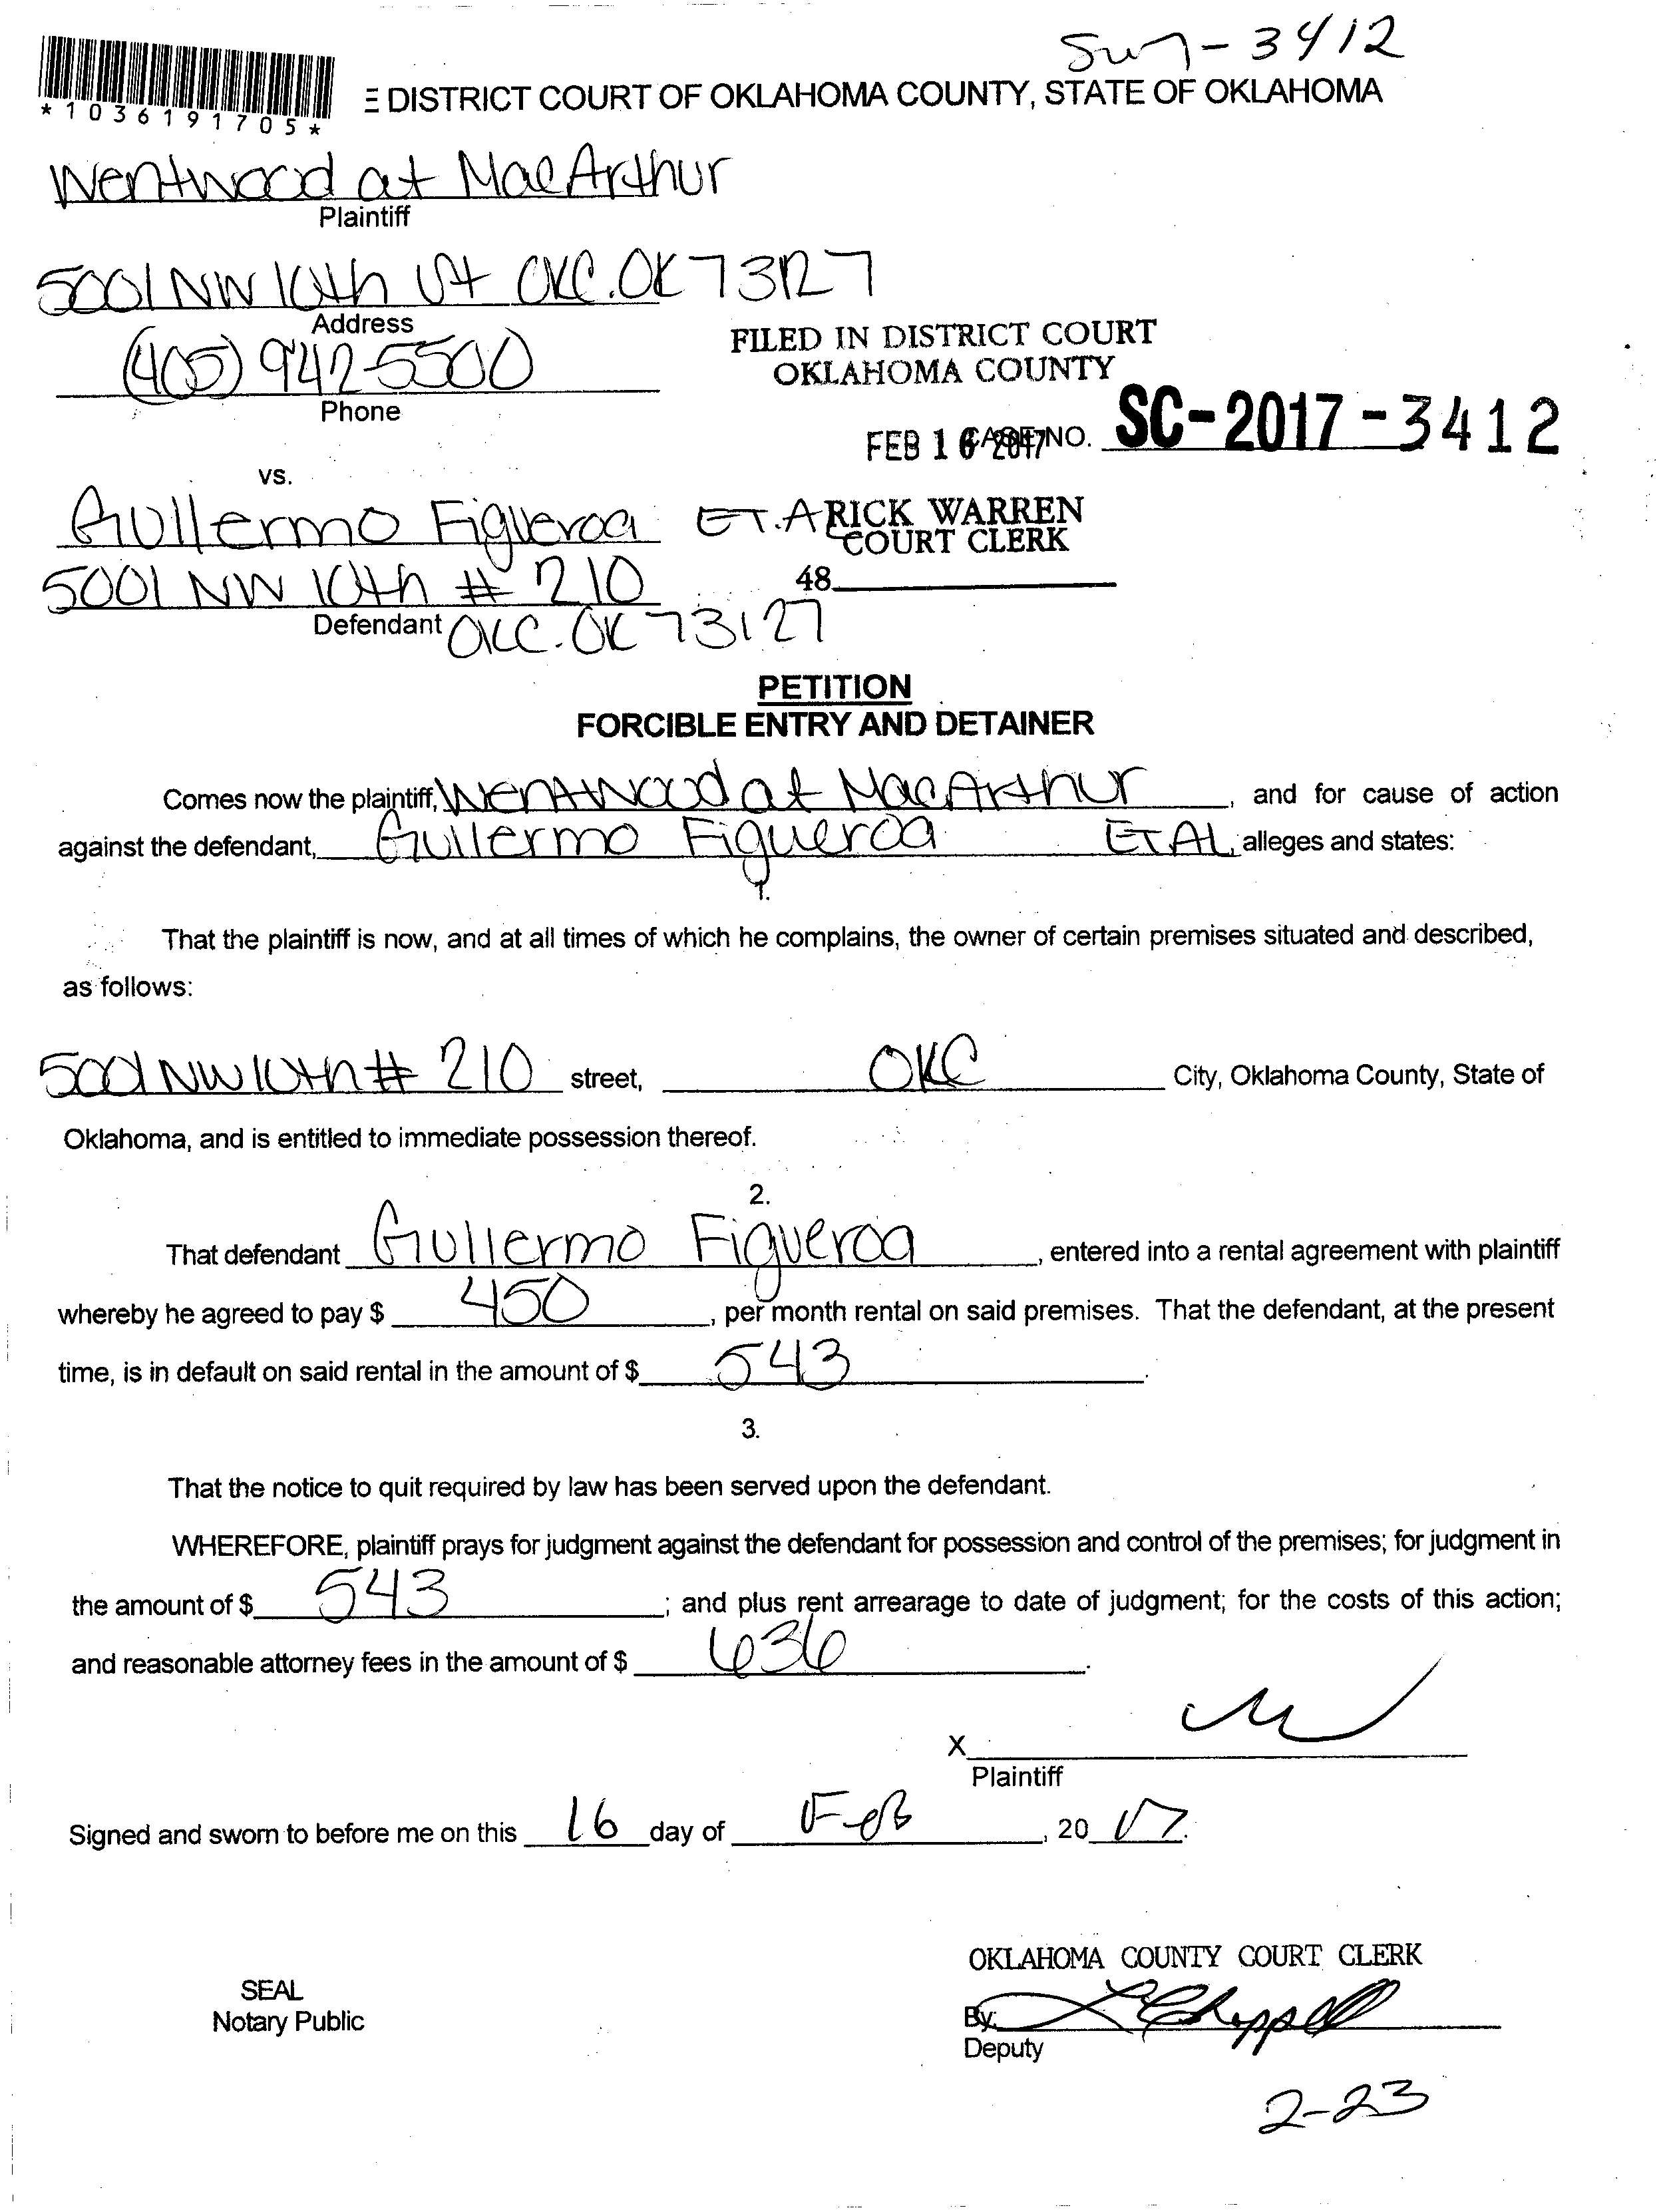 3412
*1036191705*
DISTRICT COURT OF OKLAHOMA COUNTY, STATE OF OKLAHOMA
Wentwood at MacArthur
Plaintiff
5001 NW 10th St OKC. OK 73127
Address
(405) 942-5500
Phone
FILED IN DISTRICT COURT
OKLAHOMA COUNTY
FEB 16 2017
CASE NO. SC-2017-3412
vs.
Gullermo Figueroa ET.A
RICK WARREN
COURT CLERK
5001 NW 10th # 210
48
Defendant
OKC. OK 73127
PETITION
FORCIBLE ENTRY AND DETAINER
Comes now the plaintiff, Wentwood at MacArthur, and for cause of action
against the defendant, Gullermo Figueroa ET AL, alleges and states:
1.
That the plaintiff is now, and at all times of which he complains, the owner of certain premises situated and described,
as follows:
5001 NW 10th # 210 street, OKC City, Oklahoma County, State of
Oklahoma, and is entitled to immediate possession thereof.
2.
That defendant Gullermo Figueroa, entered into a rental agreement with plaintiff
whereby he agreed to pay $ 450, per month rental on said premises. That the defendant, at the present
time, is in default on said rental in the amount of $ 543.
3.
That the notice to quit required by law has been served upon the defendant.
WHEREFORE, plaintiff prays for judgment against the defendant for possession and control of the premises; for judgment in
the amount of $ 543; and plus rent arrearage to date of judgment; for the costs of this action;
and reasonable attorney fees in the amount of $ 636.
X
Plaintiff
Signed and sworn to before me on this 16 day of Feb, 2017.
OKLAHOMA COUNTY COURT CLERK
SEAL
Notary Public
By: Chappell
Deputy
2-23